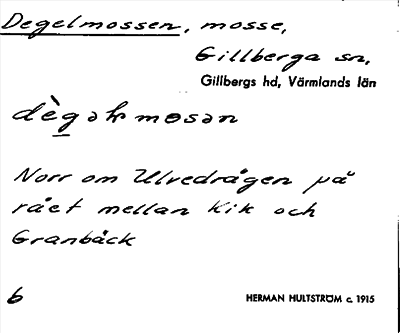 Degelmossen, mosse,
Gillberga sn,
Gillbergs hd, Värmlands län
Norr om Ulvedrågen på
rået mellan Kik och
Granbäck
6
HERMAN HULTSTRÖM c. 1915